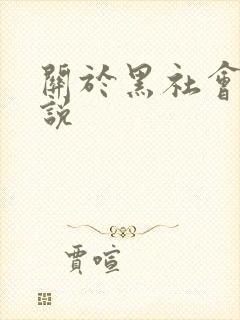 關於黑社會
說
賈喧